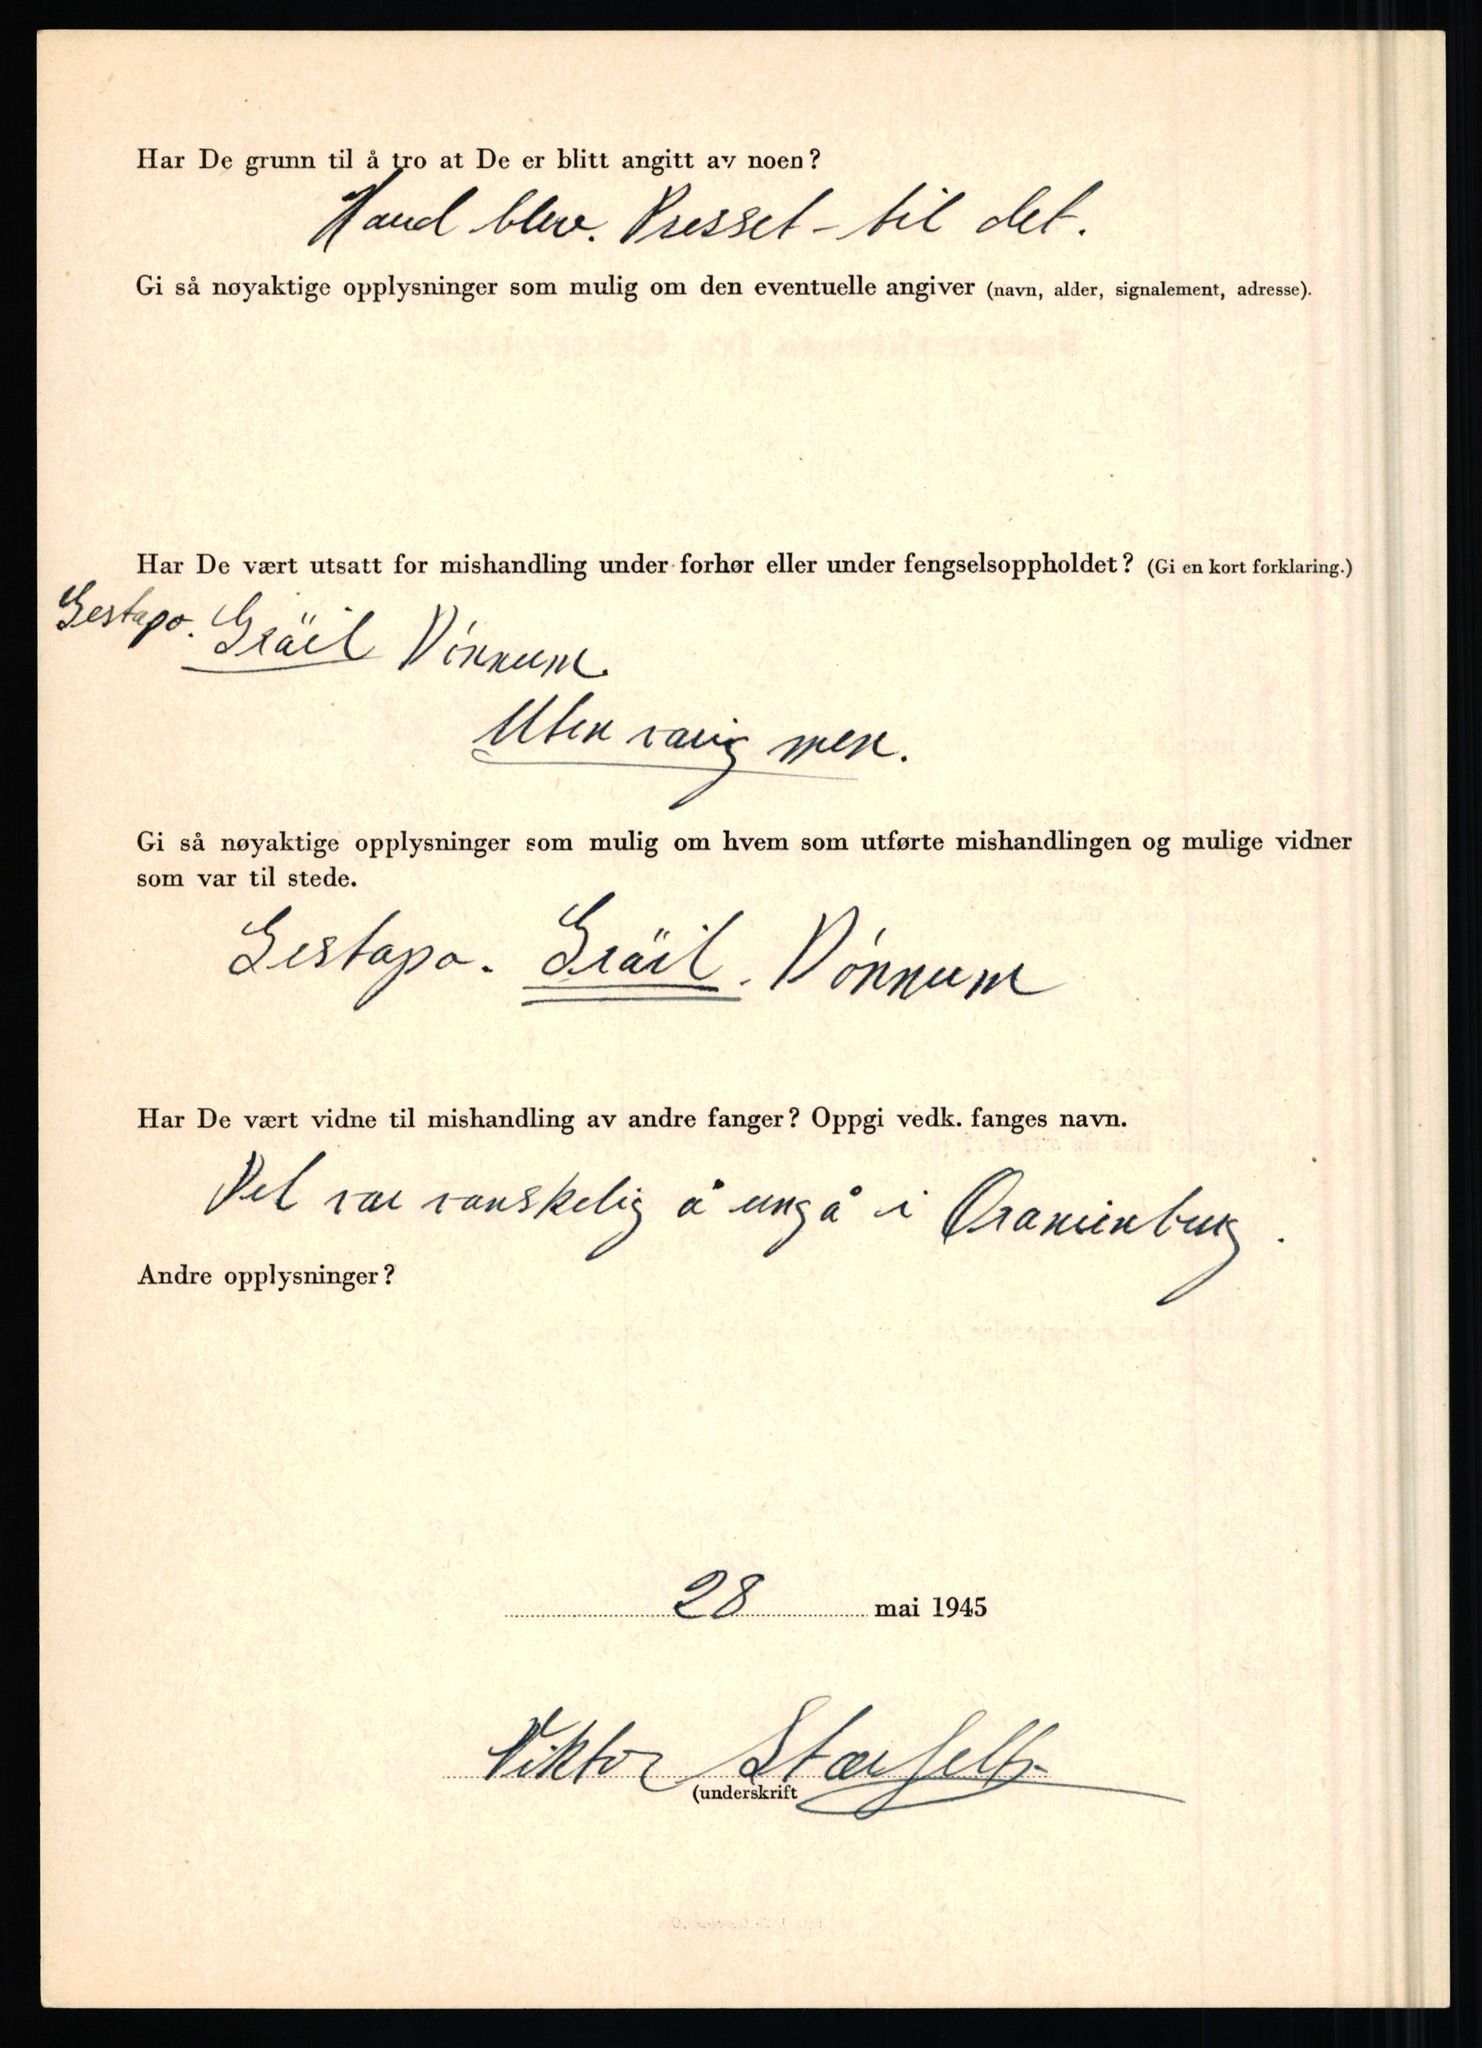 Har De grunn til å tro at De er blitt angitt av noen?
Hand blev. Presset - til det.
Gi så nøyaktige opplysninger som mulig om den eventuelle angiver (navn, alder, signalement, adresse).
Har De vært utsatt for mishandling under forhør eller under fengselsoppholdet? (Gi en kort forklaring.)
Gestapo. Gräil Dønnum.
Uten varig men.
Gi så nøyaktige opplysninger som mulig om hvem som utførte mishandlingen og mulige vidner
som var til stede.
Gestapo. Gräil. Dønnum
Har De vært vidne til mishandling av andre fanger? Oppgi vedk. fanges navn.
Det var vanskelig å ungå i Oranienburg.
Andre opplysninger?
28 mai 1945
Viktor
(underskrift